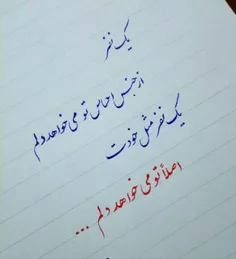 یک نفر
از جنس احساس تو می خواهد دلم
یک نفر مثل خودت
اصلاً تو می خواهد دلم ...